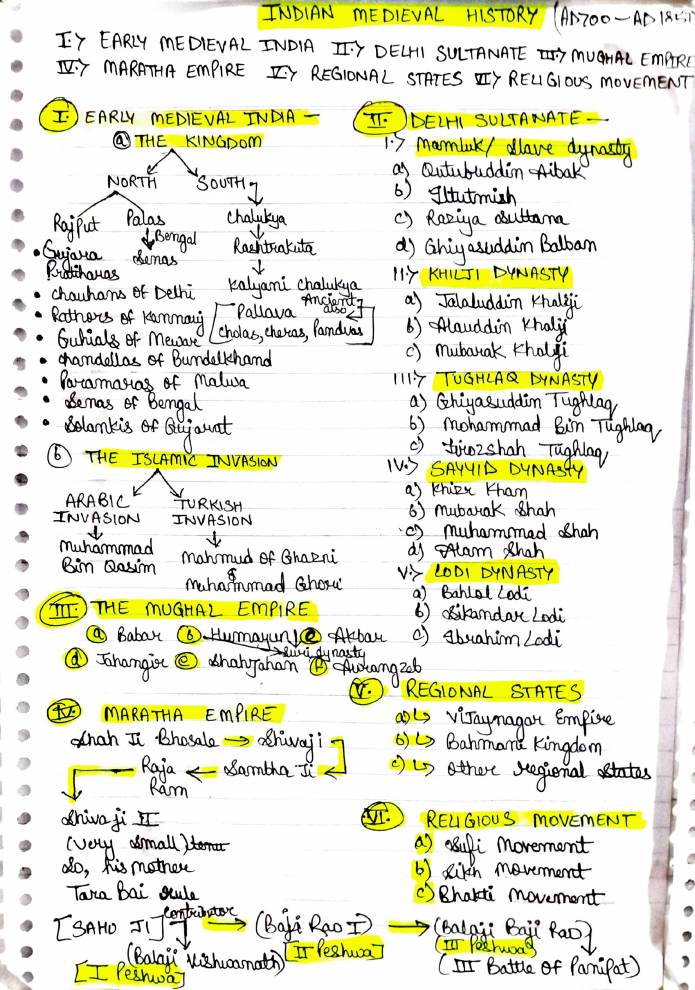 INDIAN MEDIEVAL HISTORY (AD700 - AD18
I.> EARLY MEDIEVAL INDIA II.> DELHI SULTANATE III.> MUGHAL EMPIRE
IV.> MARATHA EMPIRE V.> REGIONAL STATES VI> RELIGIOUS MOVEMENT
I. EARLY MEDIEVAL INDIA -
a THE KINGDOM
NORTH SOUTH
Rajput Palas Chalukya
Bengal
Senas Rashtrakuta
Kalyani Chalukya
Ancient also
[Pallava
cholas, cheras, Pandyas]
• Gujara Pratiharas
• chauhans of Delhi
• Rathors of Kannauj
• Guhials of Mewar
• chandellas of Bundelkhand
• Paramaras of Malwa
• Senas of Bengal
• Solankis of Gujarat
b THE ISLAMIC INVASION
ARABIC INVASION TURKISH INVASION
Muhammad Bin Qasim Mahmud of Ghazni
&
Muhammad Ghori
II. DELHI SULTANATE -
I.> Mamluk/ Slave dynasty
a) Qutubuddin Aibak
b) Iltutmish
c) Raziya Sultana
d) Ghiyasuddin Balban
II.> KHILJI DYNASTY
a) Jalaluddin Khalji
b) Alauddin Khalji
c) Mubarak Khalji
III.> TUGHLAQ DYNASTY
a) Ghiyasuddin Tughlaq
b) Mohammad Bin Tughlaq
c) Firozshah Tughlaq
IV.> SAYYID DYNASTY
a) Khizr Khan
b) Mubarak Shah
c) Muhammad Shah
d) Alam Shah
V.> LODI DYNASTY
a) Bahlol Lodi
b) Sikandar Lodi
c) Ibrahim Lodi
III. THE MUGHAL EMPIRE
a Babar b Humayun c Akbar
Suri dynasty
d Jahangir e ShahJahan f Aurangzeb
IV. MARATHA EMPIRE
Shah Ji Bhosale → Shivaji
Raja Ram ← Sambha Ji
Shivaji II
(very small)
So, his mother
Tara Bai rule
[SAHO JI] contributor → (Baji Rao I) → (Balaji Baji Rao)
(Balaji Vishwanath) [II Peshwa] (III Peshwa)
[I Peshwa] (III Battle of Panipat)
V. REGIONAL STATES
a) ↳ ViJaynagar Empire
b) ↳ Bahmani Kingdom
c) ↳ Other regional States
VI. RELIGIOUS MOVEMENT
a) Sufi Movement
b) Sikh Movement
c) Bhakti Movement